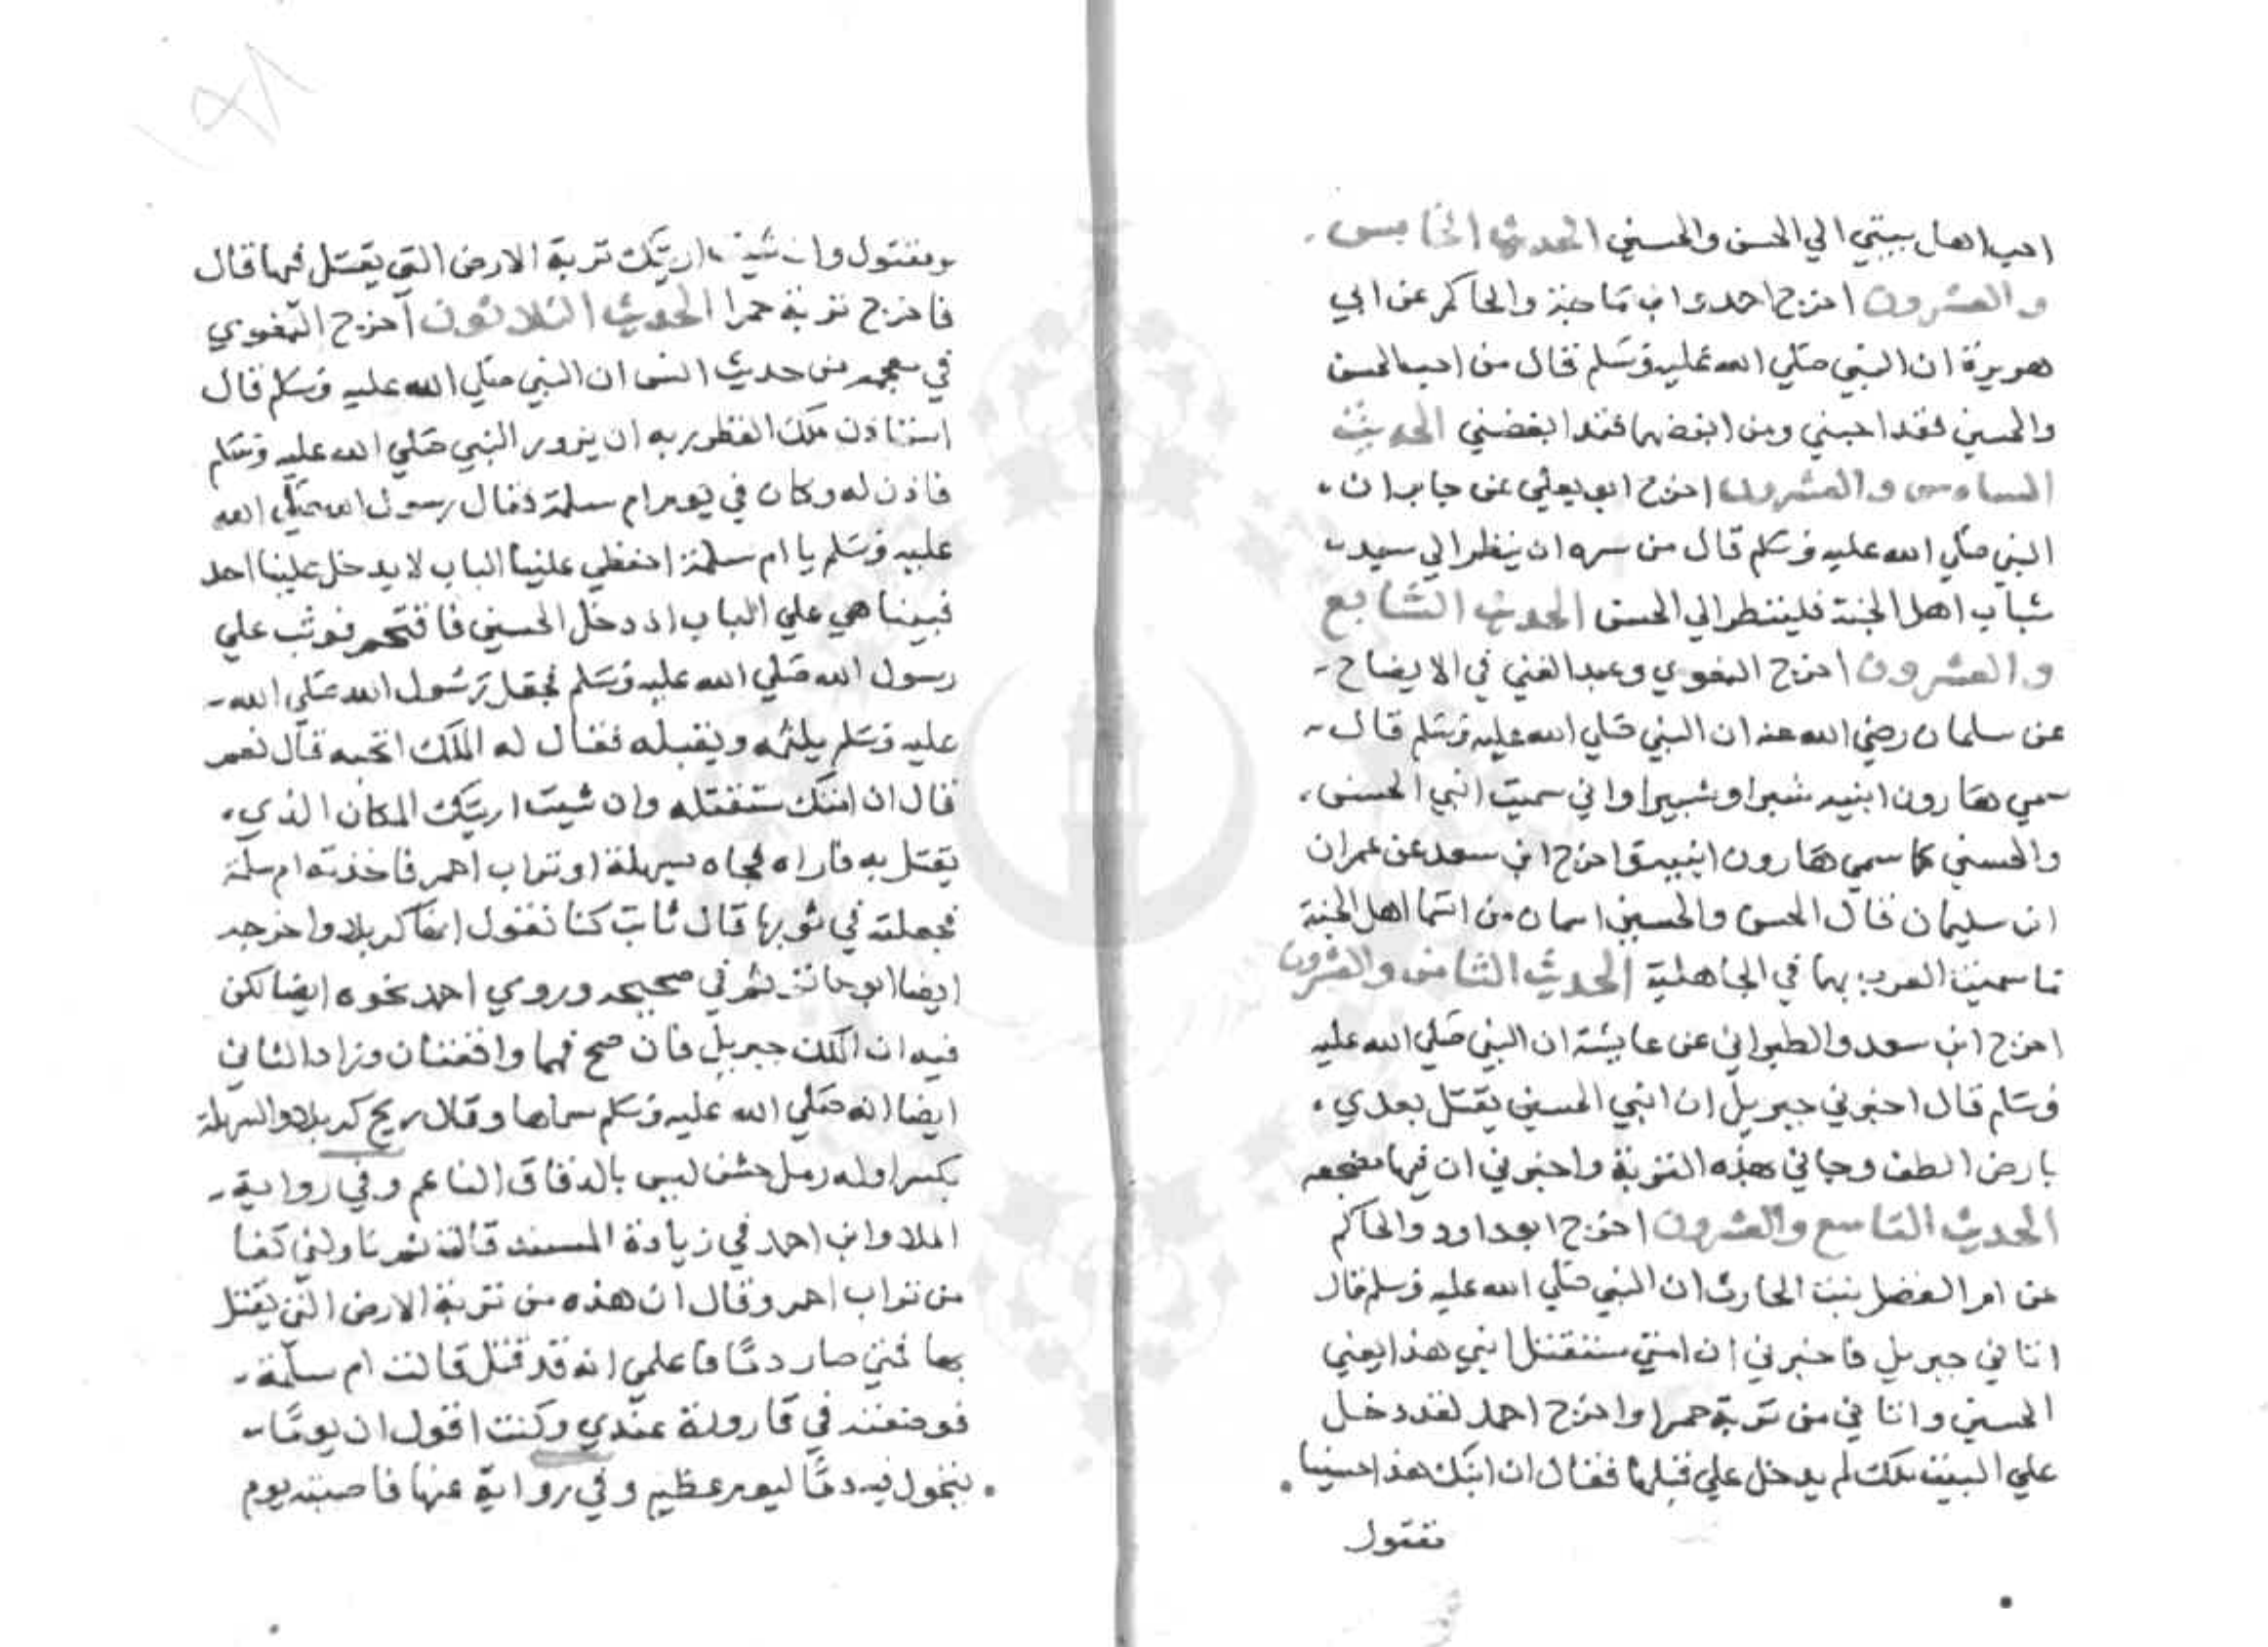 احب اهل بيتي الي الحسن والحسين الحديث الخامس
والعشرون اخرج احمد وابن ماجة والحاكم عن ابي
هريرة ان النبي صلي الله عليه وسلم قال من احب الحسن
والحسين فقد احبني ومن ابغضهما فقد ابغضني الحديث
السادس والعشرون اخرج ابو يعلي عن جابر ان
النبي صلي الله عليه وسلم قال من سره ان ينظر الي سيد
شباب اهل الجنة فلينظر الي الحسن الحديث السابع
والعشرون اخرج البغوي وعبد الغني في الايضاح
عن سلمان رضي الله عنه ان النبي صلي الله عليه وسلم قال
سمي هارون ابنيه شبرا وشبيرا واني سميت ابني الحسن
والحسين كما سمي هارون ابنيه واخرج ابن سعد عن عمران
ابن سليمان قال الحسن والحسين اسمان من اسما اهل الجنة
ما سميت العرب بهما في الجاهلية الحديث الثامن والعشرون
اخرج ابن سعد والطبراني عن عايشة ان النبي صلي الله عليه
وسلم قال اخبرني جبريل ان ابني الحسين يقتل بعدي
بارض الطف وجاني بهذه التربة واخبرني ان فيها مضجعه
الحديث التاسع والعشرون اخرج ابو داود والحاكم
عن ام الفضل بنت الحارث ان النبي صلي الله عليه وسلم قال
اتاني جبريل فاخبرني ان امتي ستقتل ابني هذا يعني
الحسين واتاني من تربة حمرا واخرج احمد لقد دخل
علي البيت ملك لم يدخل علي قبلها فقال ان ابنك هذا حسينا
مقتول
١٩٨
مقتول وان شيت اريتك تربة الارض التي يقتل فيها قال
فاخرج تربة حمرا الحديث الثلاثون اخرج البغوي
في معجمه من حديث انس ان النبي صلي الله عليه وسلم قال
استاذن ملك القطر ربه ان يزور النبي صلي الله عليه وسلم
فاذن له وكان في يوم ام سلمة فقال رسول الله صلي الله
عليه وسلم يا ام سلمة احفظي علينا الباب لا يدخل علينا احد
فبينا هي علي الباب اذ دخل الحسين فاقتحم فوثب علي
رسول الله صلي الله عليه وسلم فجعل رسول الله صلي الله
عليه وسلم يلثمه ويقبله فقال له الملك اتحبه قال نعم
قال ان امتك ستقتله وان شيت اريتك المكان الذي
يقتل به فاراه فجاه بسهلة او تراب احمر فاخذته ام سلمة
فجعلته في ثوبها قال ثابت كنا نقول انها كربلا واخرجه
ايضا ابو حاتم في صحيحه وروي احمد نحوه ايضا لكن
فيه ان الملك جبريل فان صح فهما واقعتان وزاد الثاني
ايضا انه صلي الله عليه وسلم شمها وقال ريح كربلا والسهلة
بكسر اوله رمل خشن ليس بالدقاق الناعم وفي رواية
الملا وابن احمد في زيادة المسند قالت ثم ناولني كفا
من تراب احمر وقال ان هذه من تربة الارض التي يقتل
بها فمتي صار دمًا فاعلمي انه قد قتل قالت ام سلمة
فوضعته في قارورة عندي وكنت اقول ان يومًا
يتحول فيه دمًا ليوم عظيم وفي رواية عنها فاصبته يوم